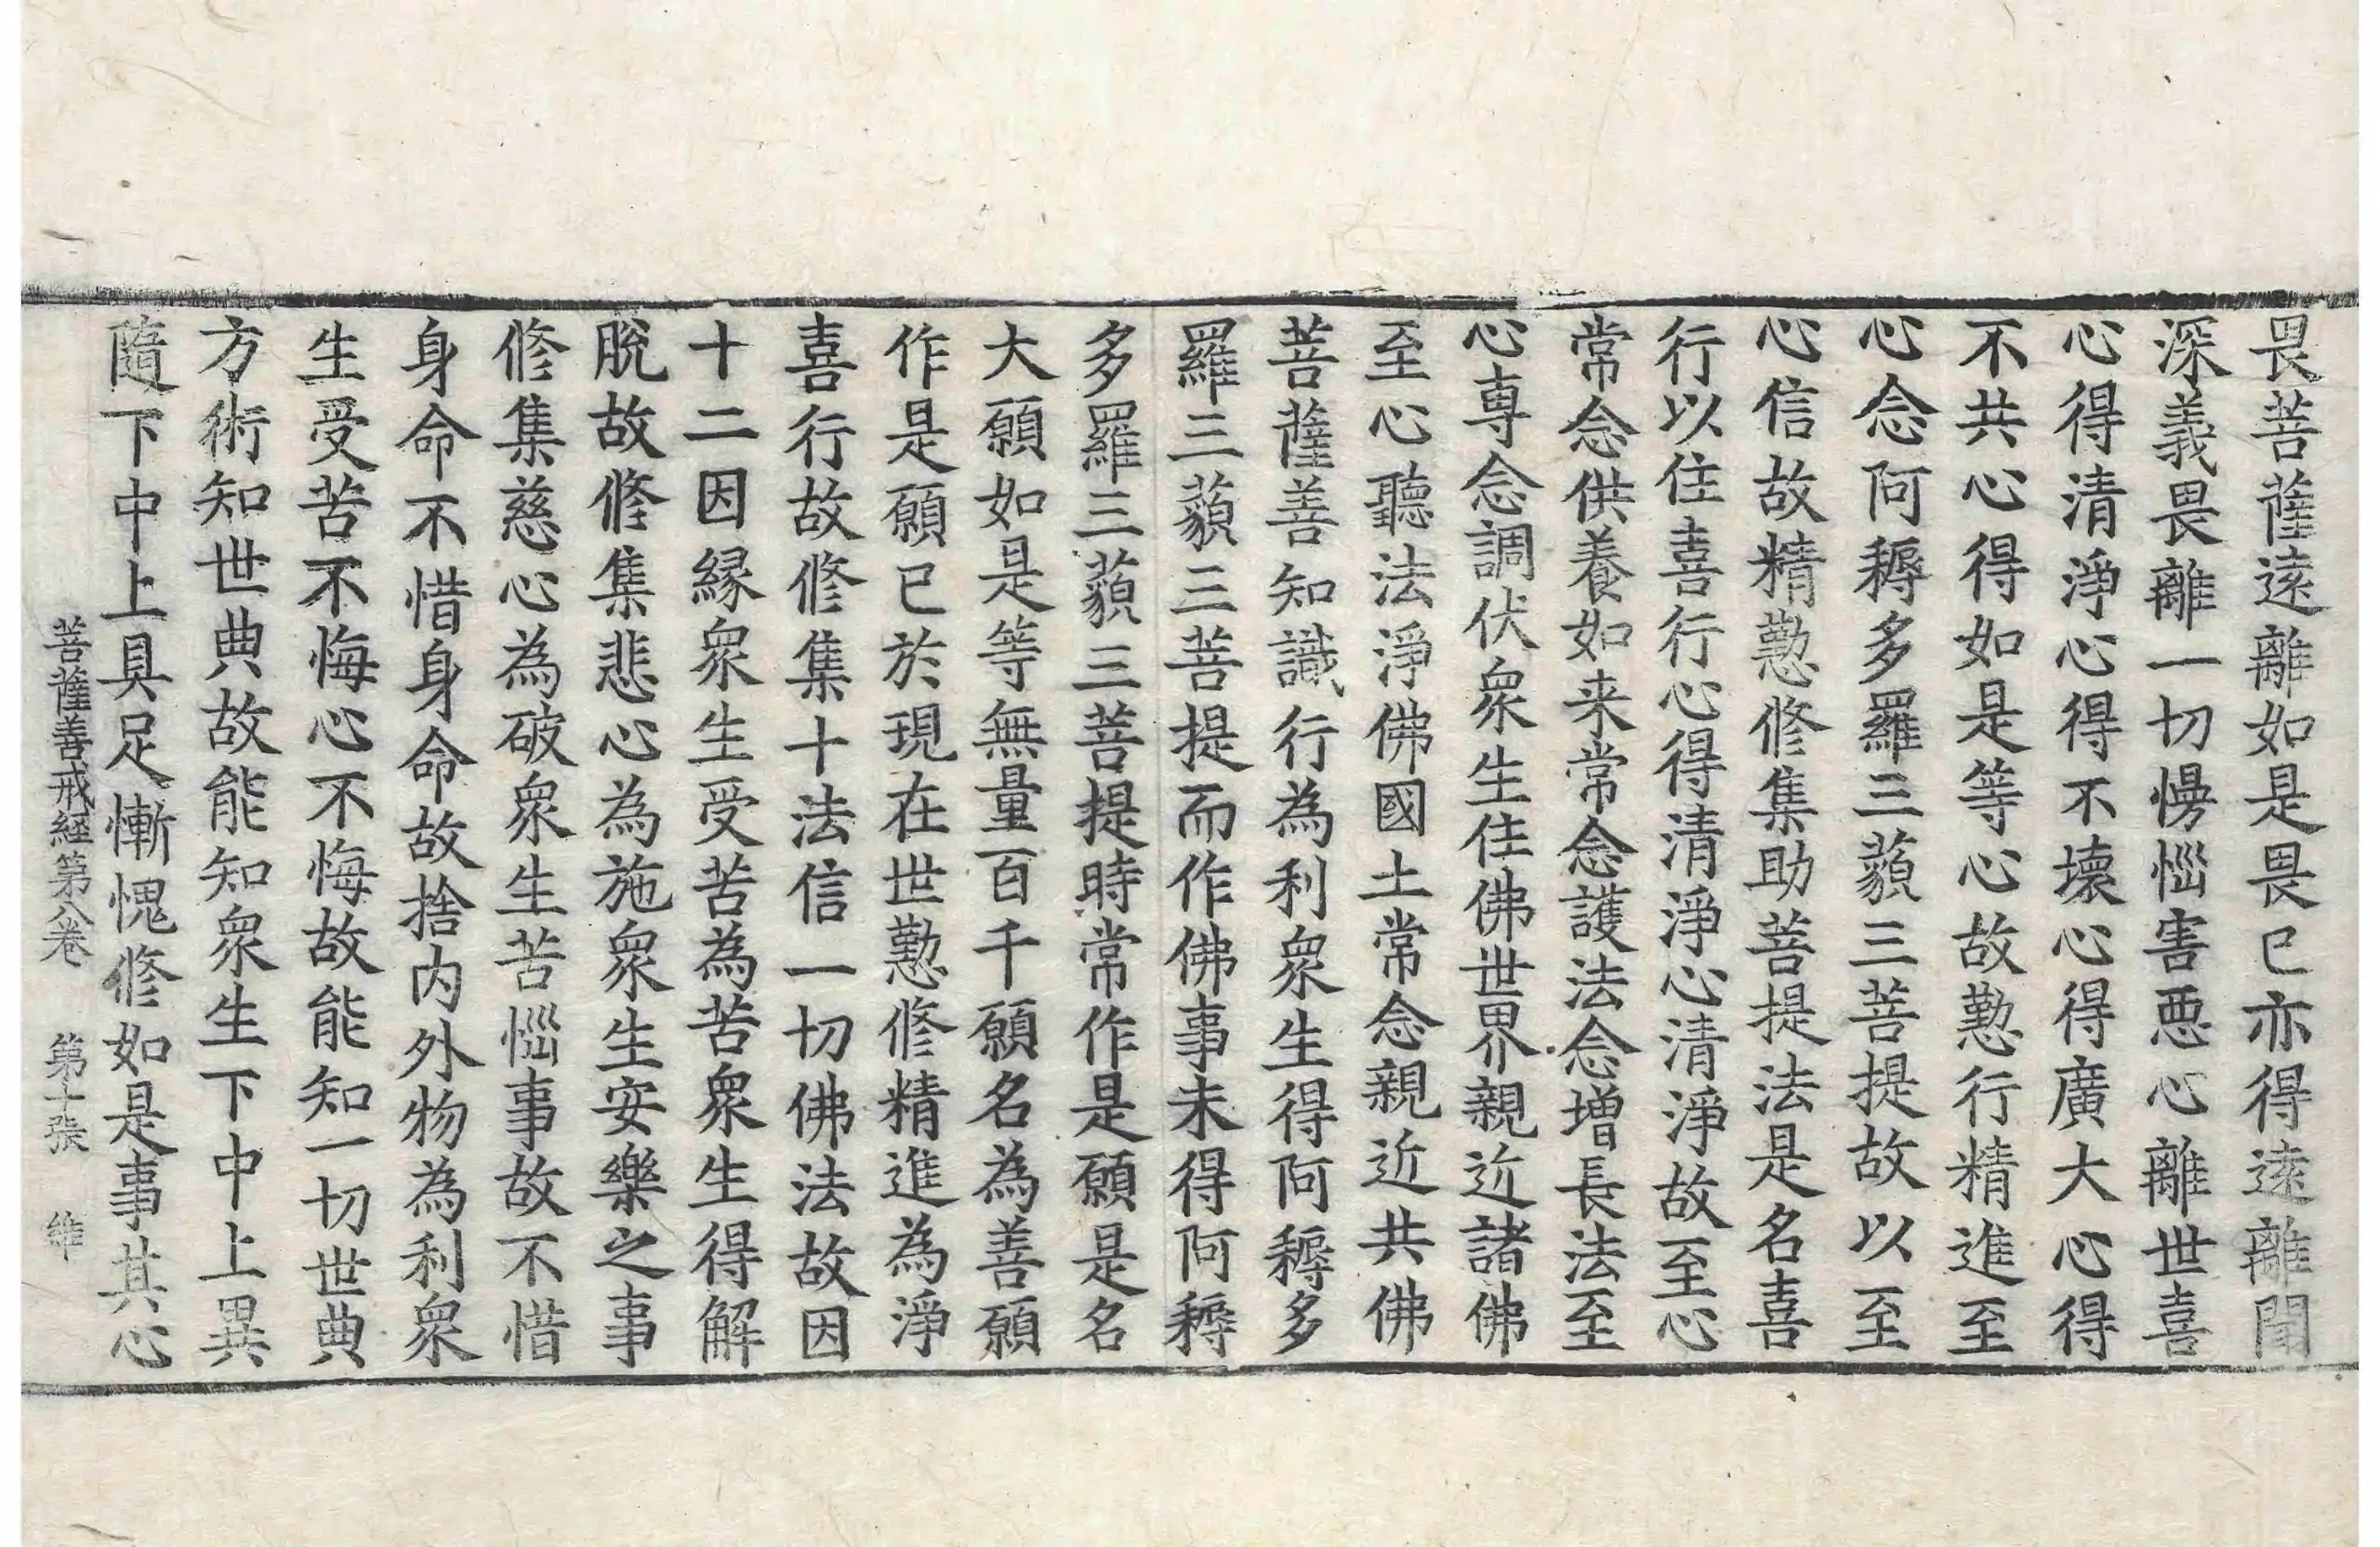 畏菩薩遠離如是畏已亦得遠離聞
深義畏離一切憍惱害惡心離世喜
心得清淨心得不壞心得廣大心得
不共心得如是等心故懃行精進至
心念阿耨多羅三藐三菩提故以至
心信故精懃修集助菩提法是名喜
行以住喜行心得清淨心清淨故至心
常念供養如来常念護法念增長法至
心專念調伏衆生住佛世界親近諸佛
至心聽法淨佛國土常念親近共佛
菩薩善知識行為利衆生得阿耨多
羅三藐三菩提而作佛事未得阿耨
多羅三藐三菩提時常作是願是名
大願如是等無量百千願名為善願
作是願已於現在世懃修精進為淨
喜行故修集十法信一切佛法故因
十二因緣衆生受苦為苦衆生得解
脫故修集悲心為施衆生安樂之事
修集慈心為破衆生苦惱事故不惜
身命不惜身命故捨内外物為利衆
生受苦不悔心不悔故能知一切世典
方術知世典故能知衆生下中上異
隨下中上具足慚愧修如是事其心
菩薩善戒經第八卷　第十張　維